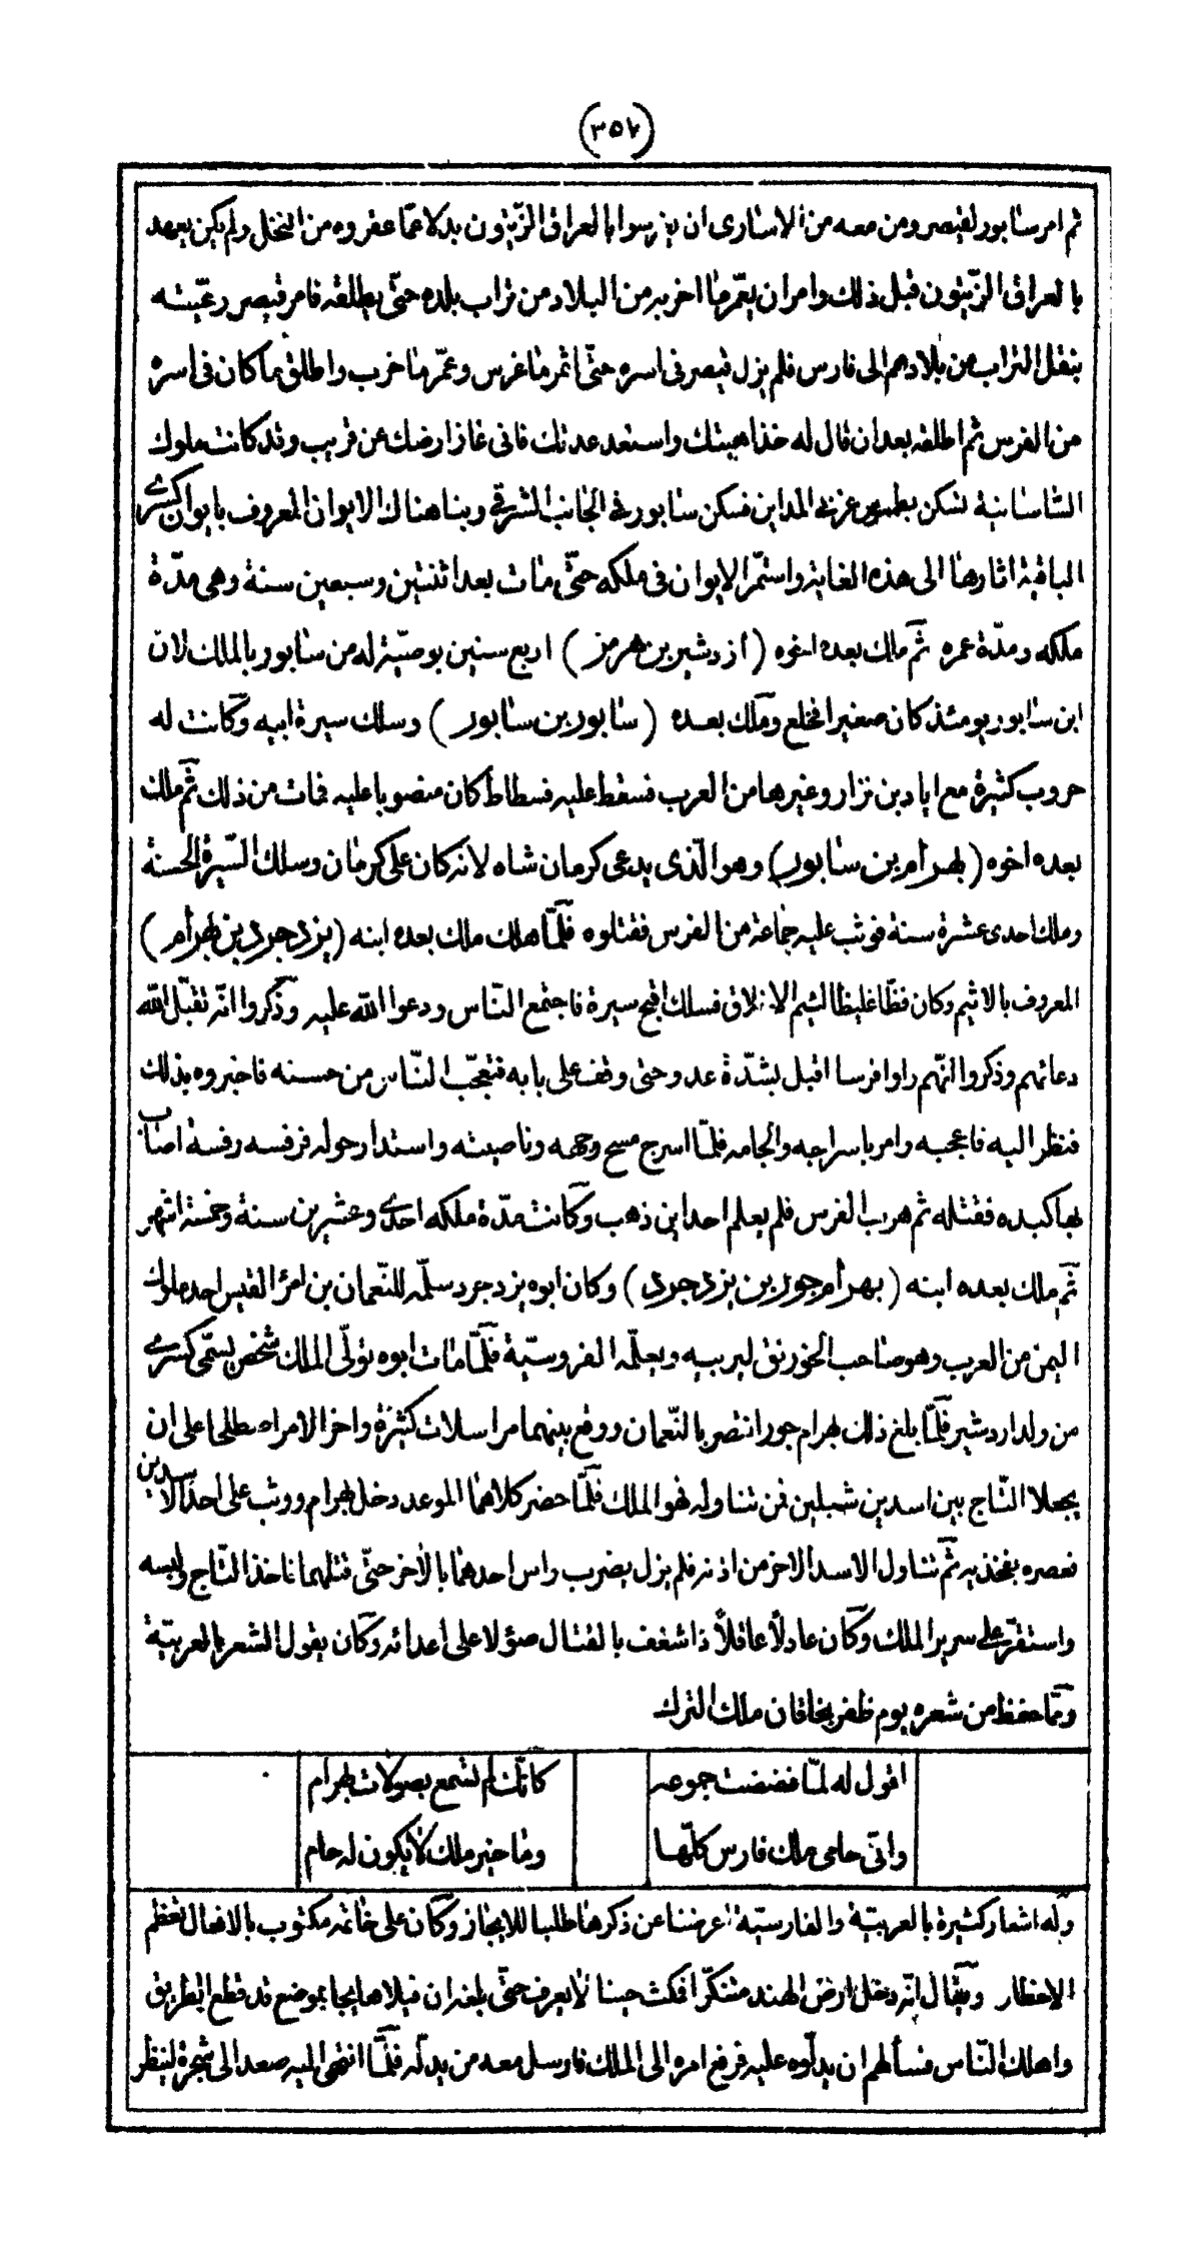 (٣٥٧)
ثم امر سابور لقيصر ومن معه من الاسارى ان يغرسوا بالعراق الزّيتون بدلا عمّا عقروه من النخل ولم يكن يعهد
بالعراق الزّيتون قبل ذلك وامر ان يعمّر ما اخربه من البلاد من تراب بلده حتّى يطلقه فامر قيصر رعيّته
بنقل التراب من بلادهم الى فارس فلم يزل قيصر فى اسره حتّى اثمر ما غرس وعمّر ما خرب واطلق ما كان فى اسره
من الفرس ثم اطلقه بعد ان قال له خذ اهبتك واستعد عدتك فانى غاز ارضك عن قريب وقد كانت ملوك
السّاسانية تسكن بطيسون غربى المداين فسكن سابور فى الجانب الشرقى وبنا هناك الايوان المعروف بايوان كسرى
الباقية اثارها الى هذه الغاية واستمّر الايوان فى ملكه حتّى مات بعد اثنتين وسبعين سنة وهى مدّة
ملكه ومدّة عمره ثمّ ملك بعده اخوه (ازدشير بن هرمز) اربع سنين بوصيّة له من سابور بالملك لان
ابن سابور يومئذ كان صغيرا فخلع وملك بعده (سابور بن سابور) وسلك سيرة ابيه وكانت له
حروب كثيرة مع اياد بن نزار وغيرها من العرب فسقط عليه فسطاط كان منصوبا عليه فمات من ذلك ثمّ ملك
بعده اخوه (بهرام بن سابور) وهو الّذى يدعى كرمان شاه لانه كان على كرمان وسلك السّيرة الحسنة
وملك احدى عشرة سنة فوثب عليه جماعة من الفرس فقتلوه فلمّا هلك ملك بعده ابنه (يزدجرد بن بهرام)
المعروف بالاثيم وكان فظّا غليظا لئيم الاخلاق فسلك اقبح سيرة فاجتمع النّاس ودعوا اللّه عليه وذكروا انّه تقبّل اللّه
دعائهم وذكروا انّهم راوا فرسا اقبل بشدّة عدو حتى وقف على بابه فتعجّب النّاس من حسنه فاخبروه بذلك
فنظر اليه فاعجبه وامر باسراجه والجامه فلمّا اسرج مسح وجهه وناصيته واستدار حوله فرفسه رفسة اصاب
بها كبده فقتله ثم هرب الفرس فلم يعلم احد اين ذهب وكانت مدّة ملكه احدى وعشرين سنة وخمسة اشهر
ثمّ ملك بعده ابنه (بهرام جور بن يزدجرد) وكان ابوه يزدجرد سلّمه للنّعمان بن امرؤ القيس احد ملوك
اليمن من العرب وهو صاحب الخورنق ليربيه ويعلّمه الفروسيّة فلمّا مات ابوه تولّى الملك شخص يسمّى كسرى
من ولد اردشير فلمّا بلغ ذلك بهرام جور انتصر بالنّعمان ووقع بينهما مراسلات كثيرة واخر الامر اصطلحا على ان
يجعلا التّاج بين اسدين شبلين فمن تناوله فهو الملك فلمّا حضر كلاهما الموعد دخل بهرام ووثب على احد الاسدين
فعصره بفخذيه ثمّ تناول الاسد الاخر من اذنه فلم يزل يضرب راس احدهما بالاخر حتّى قتلهما فاخذ التّاج ولبسه
واستقرّ على سرير الملك وكان عادلًا عاقلًا ذا شغف بالقتال صؤلا على أعدائه وكان يقول الشعر بالعربيّة
وممّا حفظ من شعره يوم ظفر بخاقان ملك الترك
اقول له لمّا فضضت جموعه كانّك لم تسمع بصولات بهرام
وانّى حامى ملك فارس كلّها وما خير ملك لا يكون له حام
وله اشعار كثيرة بالعربيّة والفارسيّة اعرضنا عن ذكرها طلبا للايجاز وكان على خاتمه مكتوب بالافعال تعظم
الاخطار ويقال انّه دخل ارض الهند متنكّرا فمكث حينا لا يعرف حتّى بلغه ان فيلا هايجا بموضع قد قطع الطريق
واهلك النّاس فسألهم ان يدلّوه عليه فرفع امره الى الملك فارسل معه من يدلّه فلمّا انتهى اليه صعد الى شجرة لينظر